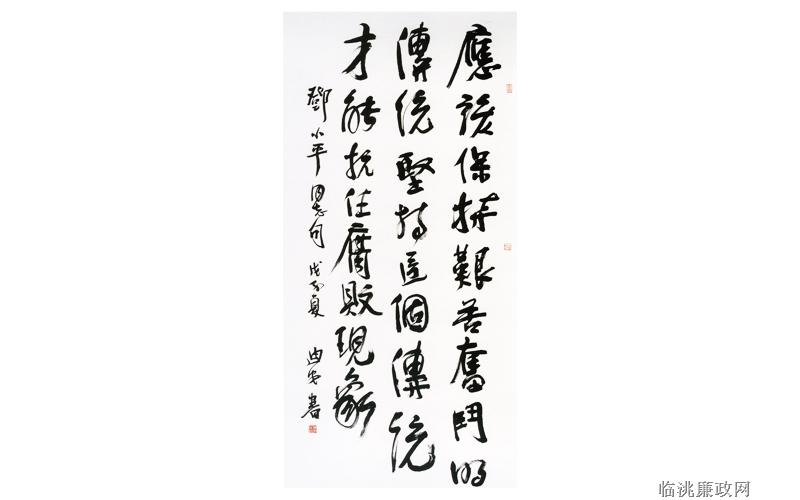 應該保持艱苦奮鬥的
傳統堅持這個傳統
才能抗住腐敗現象
鄧小平同志句 戊子夏 書
临洮廉政网